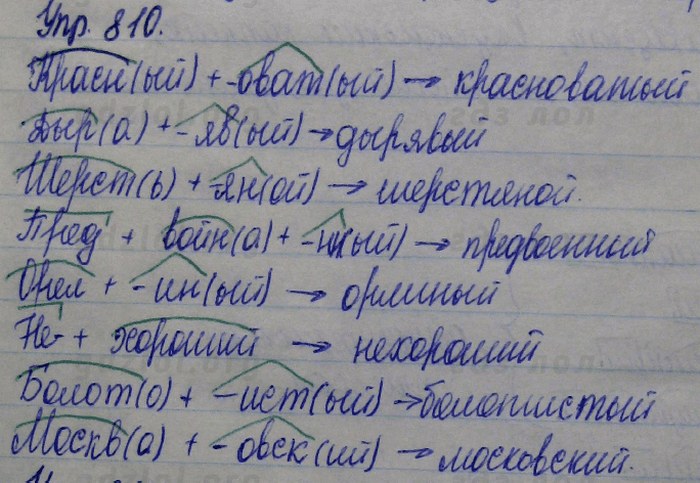 Упр. 810.
Красн(ый) + -оват(ый) → красноватый
Дыр(а) + -яв(ый) → дырявый
Шерст(ь) + -ян(ой) → шерстяной.
Пред + войн(а) + -нн(ый) → предвоенный
Орел + -ин(ый) → орлиный
Не- + хороший → нехороший
Болот(о) + -ист(ый) → болотистый
Москв(а) + -овск(ий) → московский.